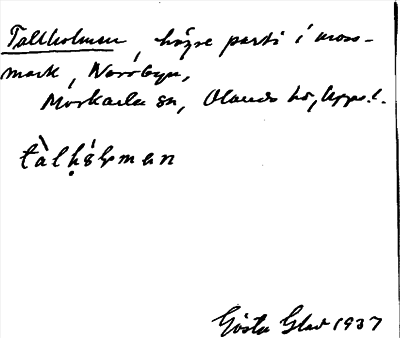 Tallholmen, högre parti i moss-
mark, Norrbyn,
Morkarla sn, Olands hd, Upps. l.
tàlḥólmen
Gösta Glad 1937